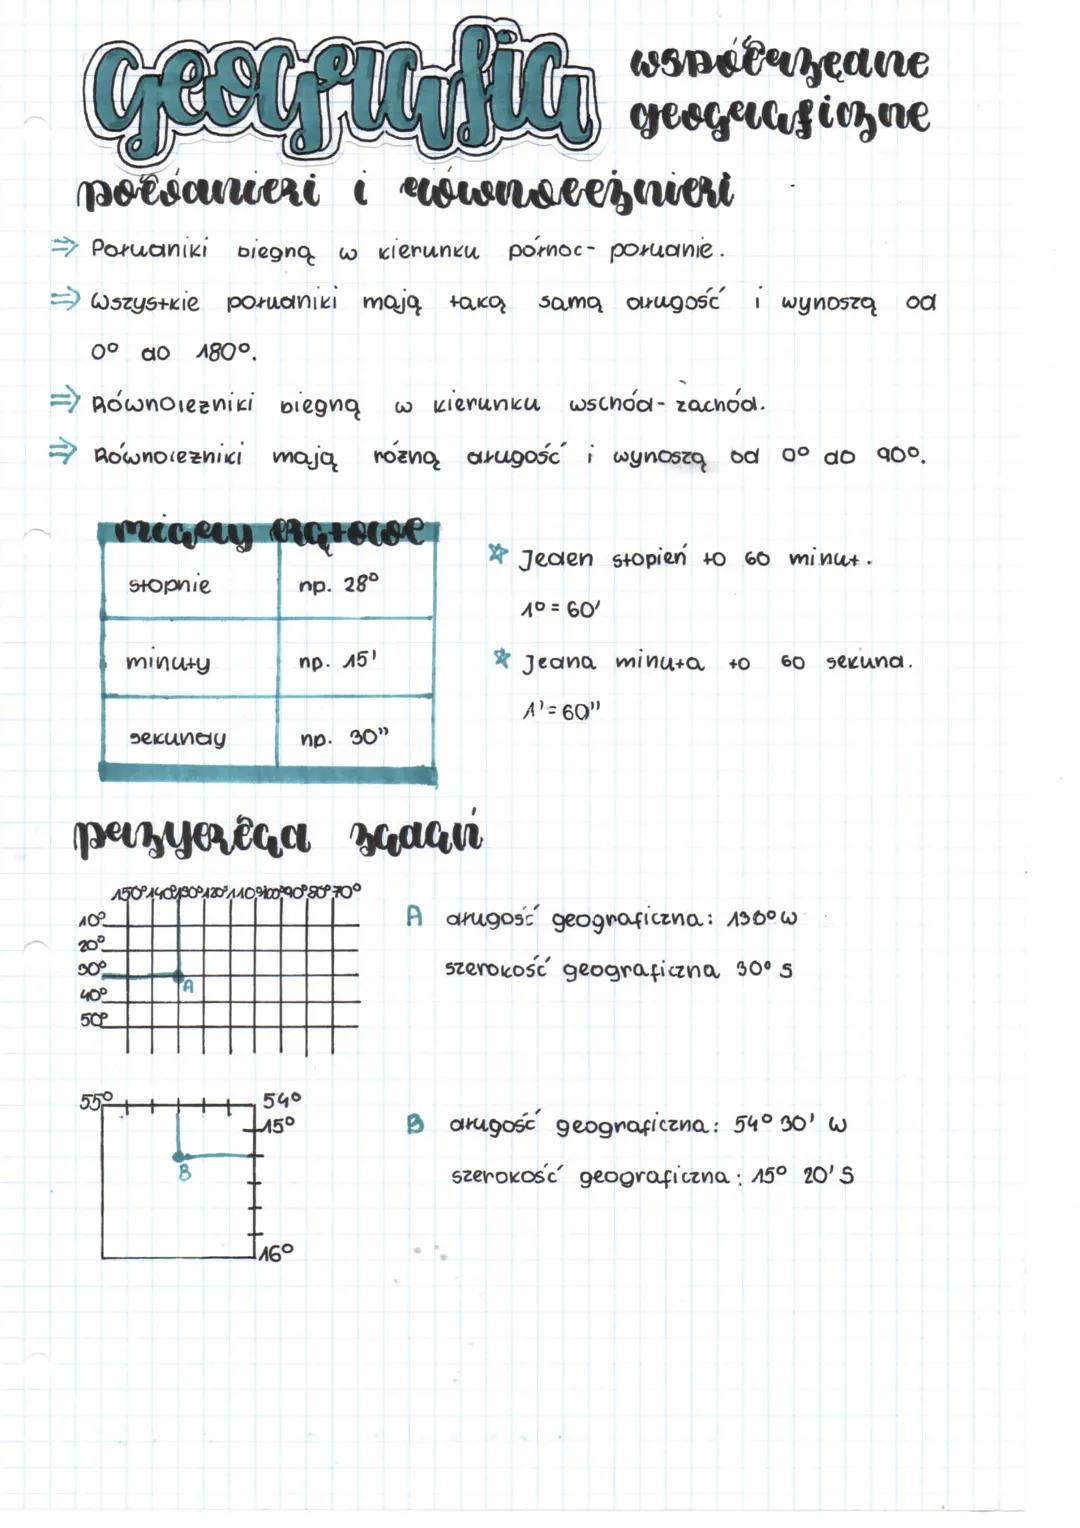 Geografia
współrzędne
geograficzne
południki i równoleżniki
⇒ Południki biegną w kierunku północ-południe.
⇒ Wszystkie południki mają taką samą długość i wynoszą od
0° do 180°.
⇒ Równoleżniki biegną w kierunku wschód-zachód.
⇒ Równoleżniki mają różną długość i wynoszą od 0° do 90°.
miary kątowe
stopnie np. 28°
minuty np. 15'
sekundy np. 30"
☆ Jeden stopień to 60 minut.
1° = 60'
☆ Jedna minuta to 60 sekund.
1' = 60"
przykład zadań
150° 140° 130° 120° 110° 100° 90° 80° 70°
10°
20°
30°
40°
50°
A
A długość geograficzna: 130° W
szerokość geograficzna 30° S
55° 54°
15°
B
16°
B długość geograficzna: 54° 30' W
szerokość geograficzna: 15° 20' S